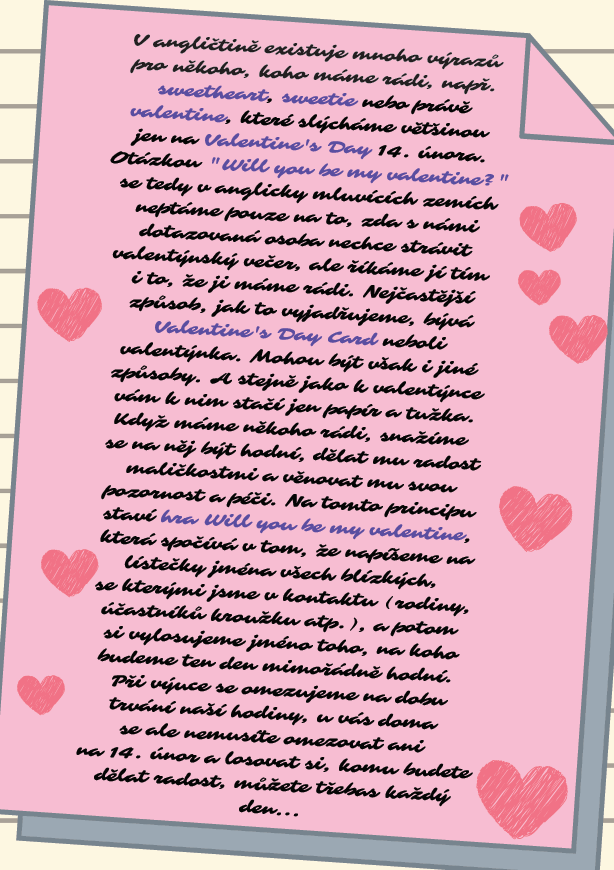 V angličtině existuje mnoho výrazů
pro někoho, koho máme rádi, např.
sweetheart, sweetie nebo právě
valentine, které slýcháme většinou
jen na Valentine's Day 14. února.
Otázkou "Will you be my valentine?"
se tedy v anglicky mluvících zemích
neptáme pouze na to, zda s námi
dotazovaná osoba nechce strávit
valentýnský večer, ale říkáme jí tím
i to, že ji máme rádi. Nejčastější
způsob, jak to vyjadřujeme, bývá
Valentine's Day Card neboli
valentýnka. Mohou být však i jiné
způsoby. A stejně jako k valentýnce
vám k nim stačí jen papír a tužka.
Když máme někoho rádi, snažíme
se na něj být hodní, dělat mu radost
maličkostmi a věnovat mu svou
pozornost a péči. Na tomto principu
staví hra Will you be my valentine,
která spočívá v tom, že napíšeme na
lístečky jména všech blízkých,
se kterými jsme v kontaktu (rodiny,
účastníků kroužku atp.), a potom
si vylosujeme jméno toho, na koho
budeme ten den mimořádně hodní.
Při výuce se omezujeme na dobu
trvání naší hodiny, u vás doma
se ale nemusíte omezovat ani
na 14. únor a losovat si, komu budete
dělat radost, můžete třebas každý
den...